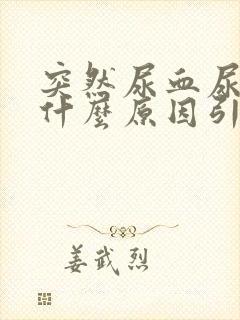 突然尿血尿
什麼原因引
姜武烈